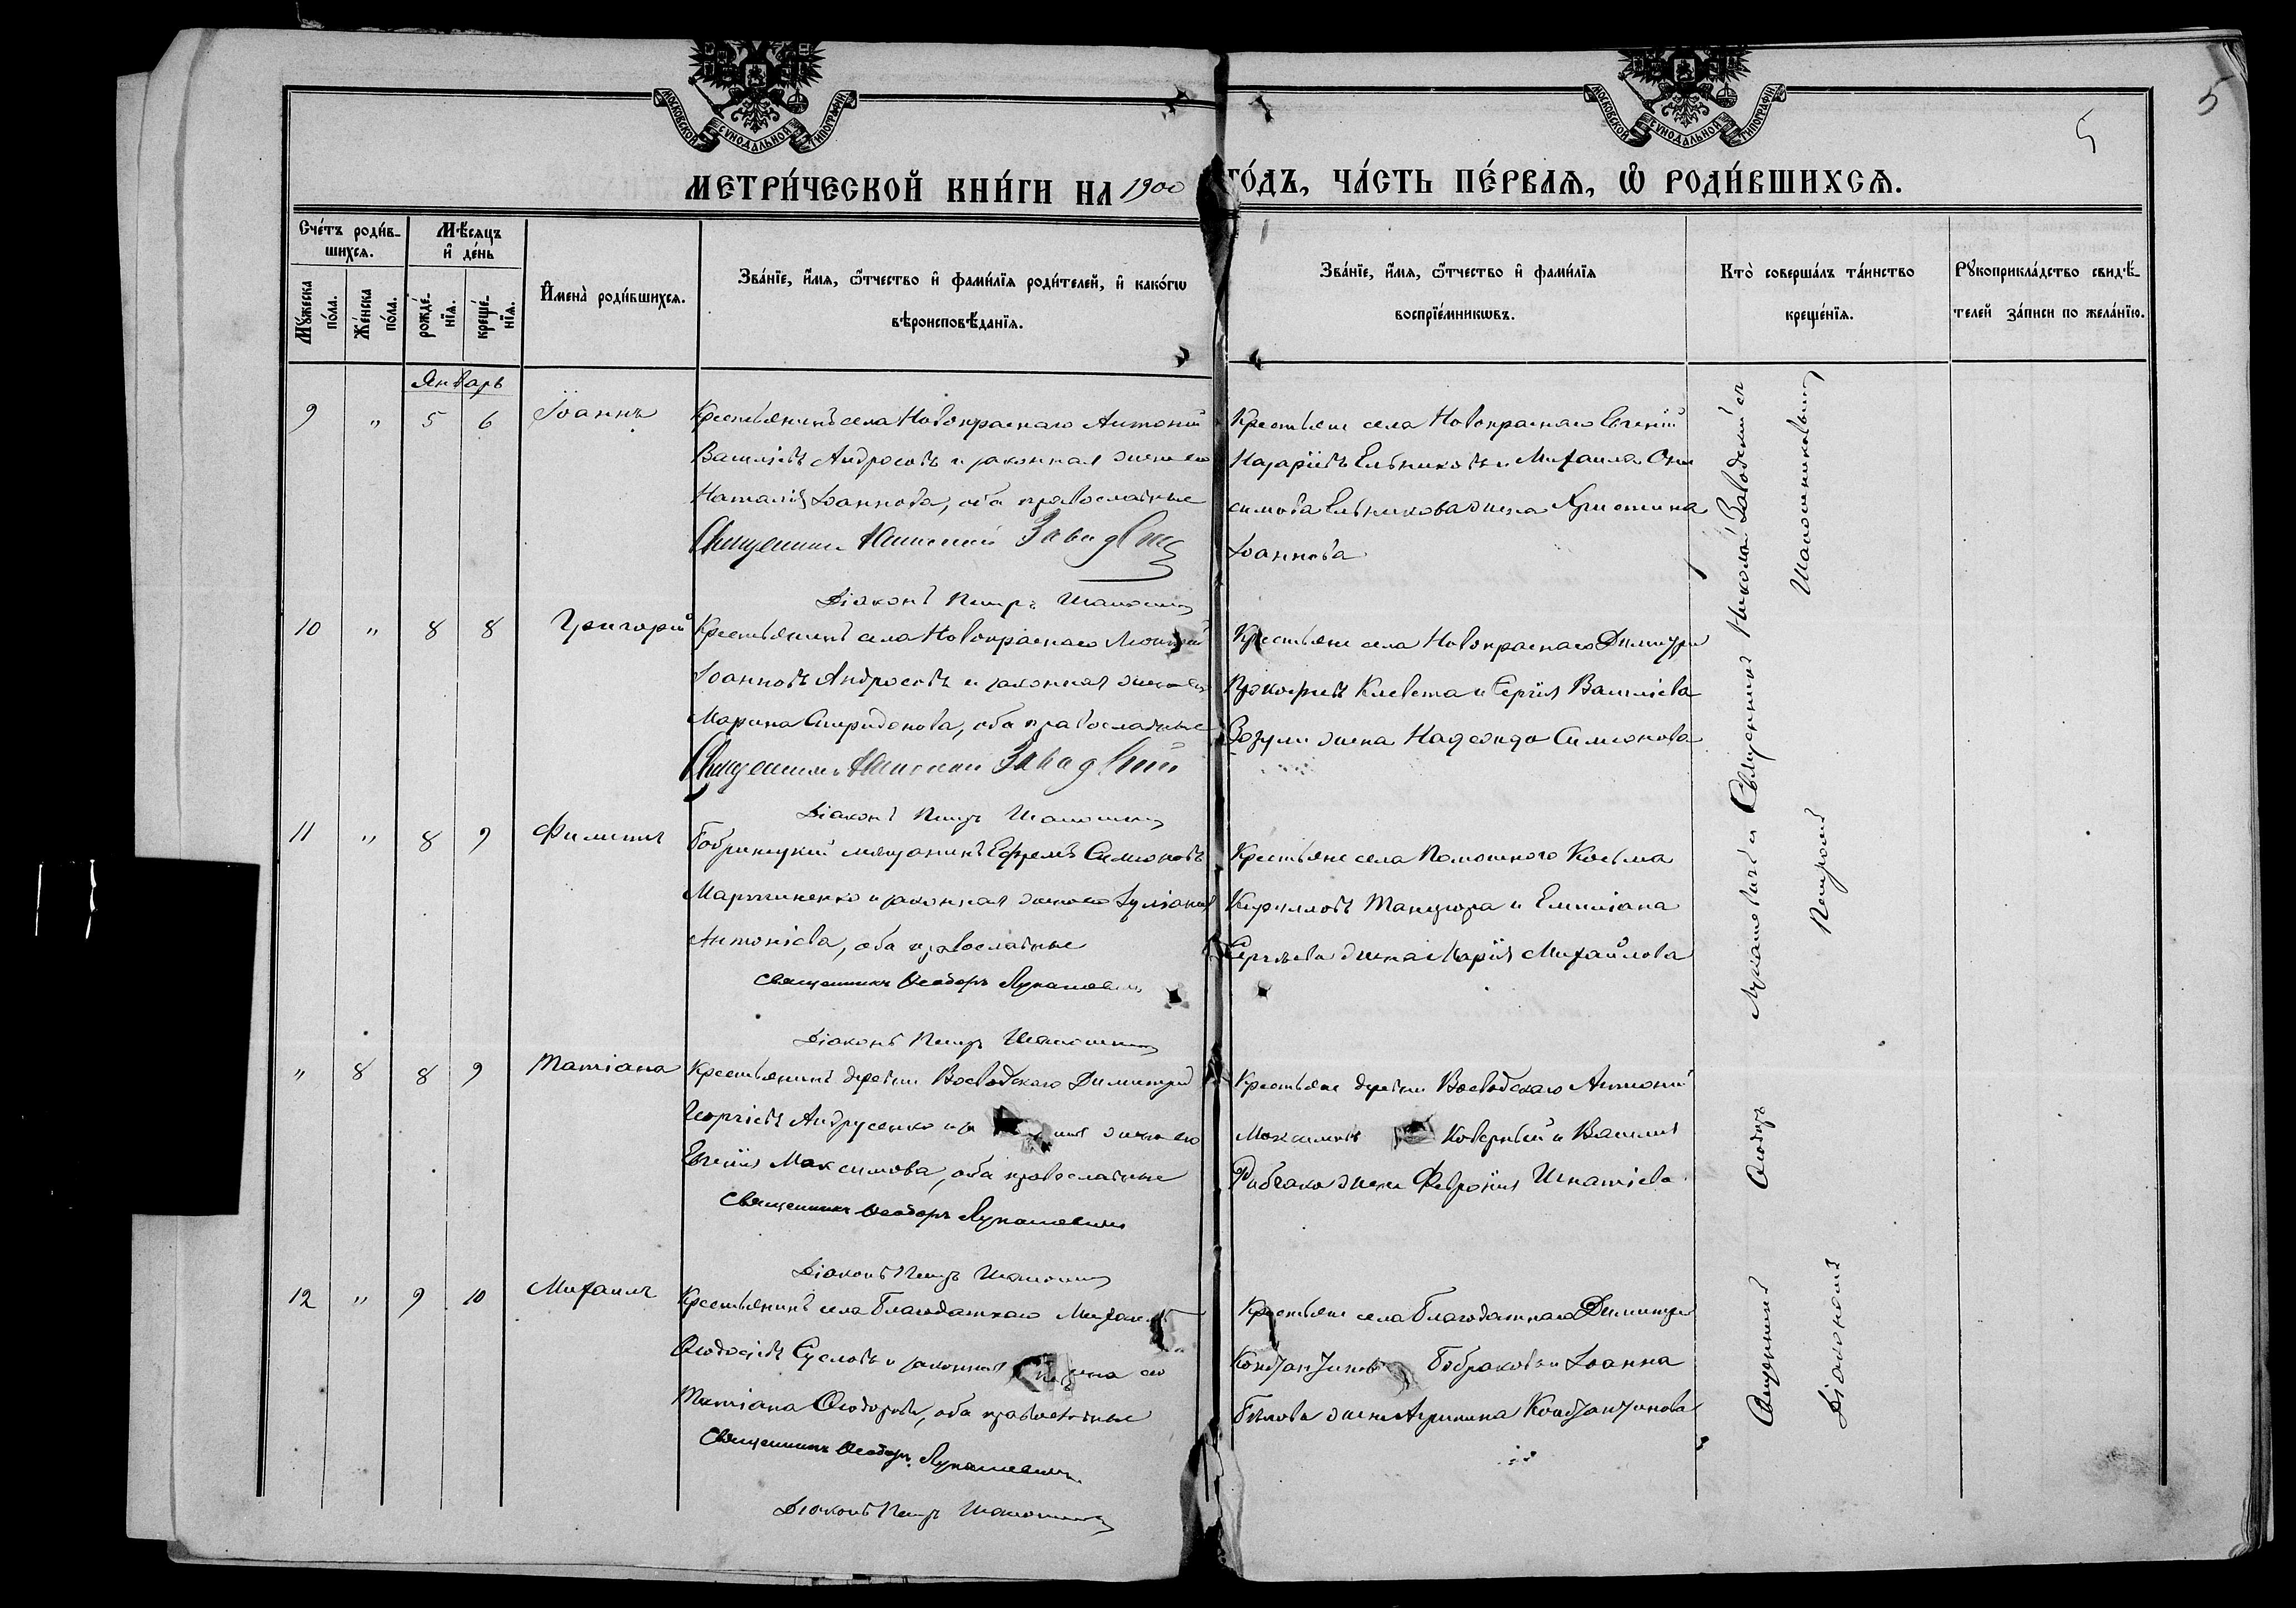 5
5
МОСКОВСКОЙ СѴНОДАЛЬНОЙ ТИПОГРАФІИ
МОСКОВСКОЙ СѴНОДАЛЬНОЙ ТИПОГРАФІИ
МЕТРИ́ЧЕСКОЙ КНИ́ГИ НА 1900 ГО́ДЪ, ЧА́СТЬ ПЕ́РВАѦ, Ѡ҆ РОДИ́ВШИХСѦ.
Сче́тъ роди́в-
шихсѧ.
Мѹ́жеска по́ла.
Же́нска по́ла.
Мѣ́сѧцъ
и҆ де́нь
рожде́-нїѧ.
креще́-нїѧ.
И҆мена̀ роди́вшихсѧ.
Зва́нїе, и҆́мѧ, ѻ҆́тчество и҆ фами́лїѧ роди́телей, и҆ како́гѡ
вѣроисповѣ́данїѧ.
Зва́нїе, и҆́мѧ, ѻ҆́тчество и҆ фами́лїѧ
воспрїе́мникѡвъ.
Кто̀ соверша́лъ та́инство
креще́нїѧ.
Рѹкоприкла́дство свидѣ́-
телей за́писи по жела́нїю.
Январь
9 " 5 6 Іоаннъ
Крестьянинъ села Новокраснаго Антоній
Василіевъ Андросовъ и законная жена его
Наталія Іоаннова, оба православные
Священникъ Николай Заводскій
Діаконъ Петръ Шапошник
Крестьяне села Новокраснаго Евгеній
Назаріевъ Ельниковъ и Михаила Они
симова Ельникова жена Христина
Іоаннова
10 " 8 8 Григорій
Крестьянинъ села Новокраснаго
Іоанновъ Андросовъ и законная жена его
Марина Спиридонова, оба православные
Священникъ Николай Заводскій
Діаконъ Петръ Шапошник
Крестьяне села Новокраснаго Димитрій
Прокофіевъ Клевета и Сергія Василіева
Зозули жена Надежда Симеонова
11 " 8 9 Филиппъ
Бобринецкій мещанинъ Ефремъ Симеоновъ
Мартиненко и законная жена его Іуліанія
Антоніева, оба православные
Священникъ Ѳеодоръ Лукашевич
Діаконъ Петръ Шапошник
Крестьяне села Помошного Косьма
Кирилловъ Танцюра и Емиліана
Сергіева жена Марія Михайлова
" 8 8 9 Татіана
Крестьянинъ деревни Воеводскаго Димитрій
Георгіевъ Андрусенко и жена его
Евгенія Максимова, оба православные
Священникъ Ѳеодоръ Лукашевич
Діаконъ Петръ Шапошник
Крестьяне деревни Воеводскаго Антоній
Максимовъ и Василія
жена Февронія Игнатіева
12 " 9 10 Михаилъ
Крестьянинъ села Благодатнаго Михаилъ
Ѳеодосіевъ Сусловъ и законная жена его
Татіана Ѳеодорова, оба православные
Священникъ Ѳеодоръ Лукашевич
Діаконъ Петръ Шапошник
Крестьяне села Благодатнаго Димитрій
Константиновъ Бобраковъ и Іоанна
Бѣлова жена Агрипина Константинова
Священникъ Ѳеодоръ Лукашевичъ и Священникъ Николай Заводскій съ
Діакономъ Петромъ Шапошниковымъ